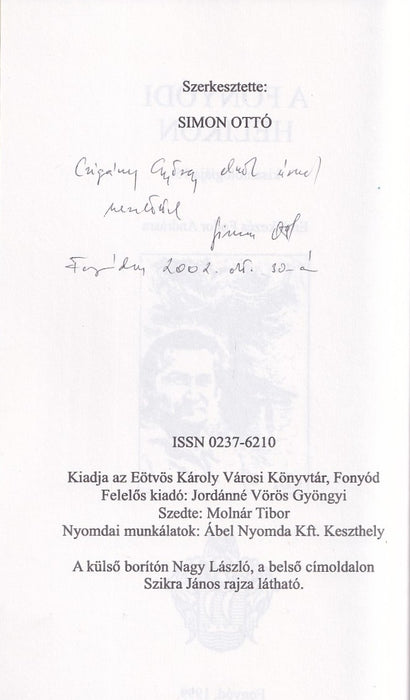 Szerkesztette:
SIMON OTTÓ
Czigány György elnök úrnak
szeretettel
Simon Ottó
Fonyód, 2002. 30-á
ISSN 0237-6210
Kiadja az Eötvös Károly Városi Könyvtár, Fonyód
Felelős kiadó: Jordánné Vörös Gyöngyi
Szedte: Molnár Tibor
Nyomdai munkálatok: Ábel Nyomda Kft. Keszthely
A külső borítón Nagy László, a belső címoldalon
Szikra János rajza látható.